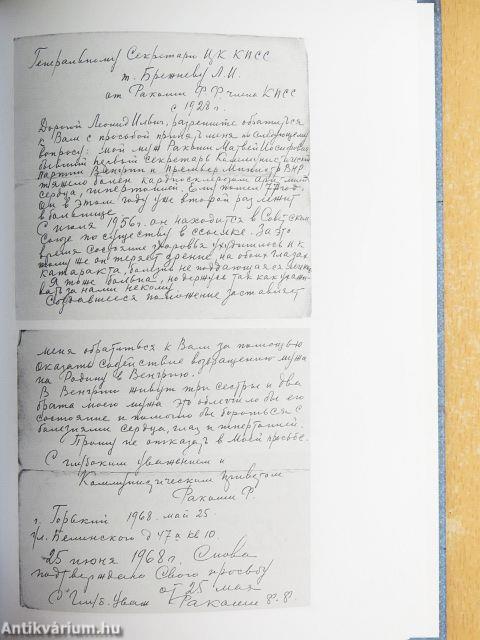 Генеральному Секретарю ЦК КПСС
т. Брежневу Л.И.
от Ракоши Ф Ф члена КПСС
с 1928 г.
Дорогой Леонид Ильич, разрешите обратиться
к Вам с просьбой принять меня по следующему
вопросу: мой муж Ракоши Матвей Иосифович
бывший первый секретарь Коммунистической
Партии Венгрии и Премьер Министр ВНР
тяжело болен кардиосклерозом
сердца, гипертонией. Ему пошел 77 год.
Он в этом году уже второй раз лежит
в больнице.
С июля 1956 г. он находится в Советском
Союзе по существу в ссылке. За это
время состояние здоровья ухудшилось и к
тому же он теряет зрение, на обоих глазах
катаракта, болезнь не поддающаяся
Я тоже больна, но держусь так как ухажи
вать за нами некому.
Создавшееся положение заставляет
меня обратиться к Вам за помощью
оказать содействие возвращению мужа
на Родину в Венгрию.
В Венгрии живут три сестры и два
брата моего мужа это облегчило бы его
состояние и помогло бы бороться с
болезнями сердца, глаз и гипертонией.
Прошу не отказать в моей просьбе.
С глубоким уважением и
Коммунистическим приветом
Ракоши Ф.
г. Горький 1968. май 25.
ул. Белинского д 47а кв 10.
25 июня 1968 г. Снова
подтверждаю Свою просьбу
от 25 мая
С глуб. Уваж Ракоши Ф.Ф.
Antikvárium.hu